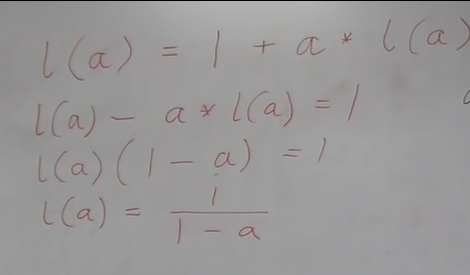 l(a) = 1 + a * l(a)
l(a) - a * l(a) = 1
l(a)(1 - a) = 1
l(a) = 1/(1 - a)